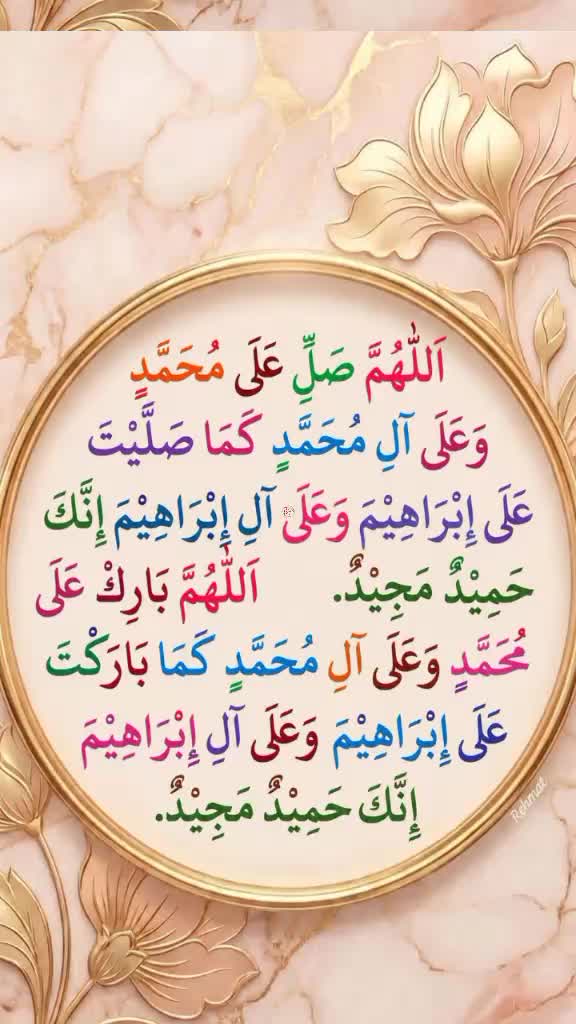 اَللّٰهُمَّ صَلِّ عَلَى مُحَمَّدٍ
وَعَلَى آلِ مُحَمَّدٍ كَمَا صَلَّيْتَ
عَلَى إِبْرَاهِيْمَ وَعَلَى آلِ إِبْرَاهِيْمَ إِنَّكَ
حَمِيْدٌ مَجِيْدٌ. اَللّٰهُمَّ بَارِكْ عَلَى
مُحَمَّدٍ وَعَلَى آلِ مُحَمَّدٍ كَمَا بَارَكْتَ
عَلَى إِبْرَاهِيْمَ وَعَلَى آلِ إِبْرَاهِيْمَ
إِنَّكَ حَمِيْدٌ مَجِيْدٌ.
Rehmat